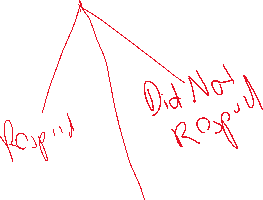 Respond
Did Not
Respond